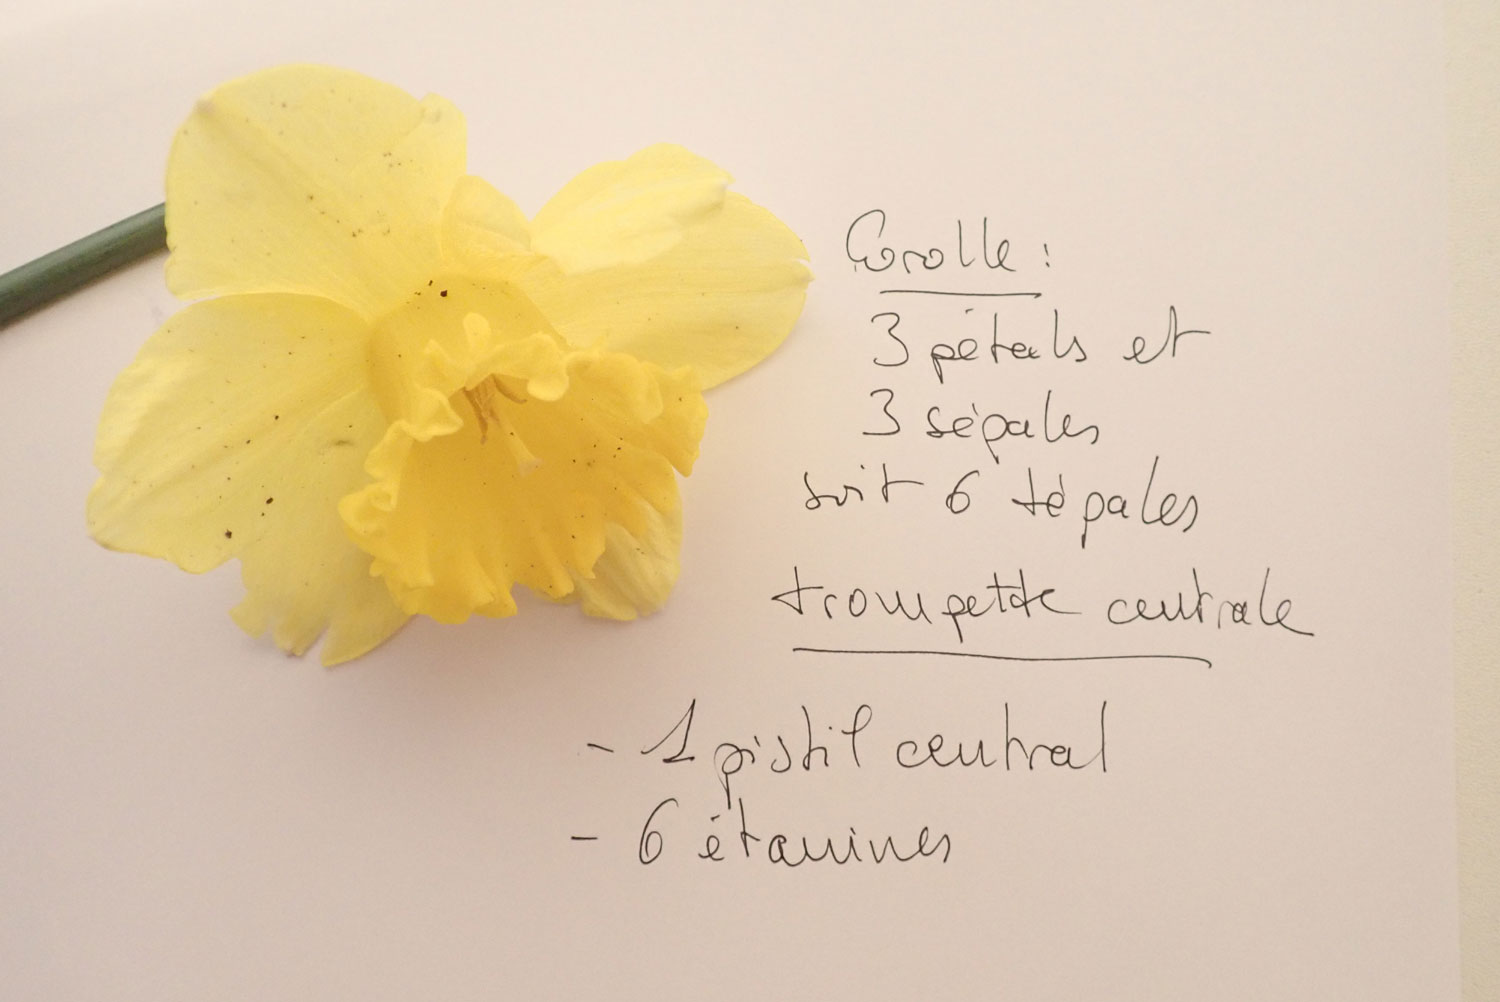 Corolle :
3 pétals et
3 sépales
soit 6 tépales
trompette centrale
- 1 pistil central
- 6 étamines